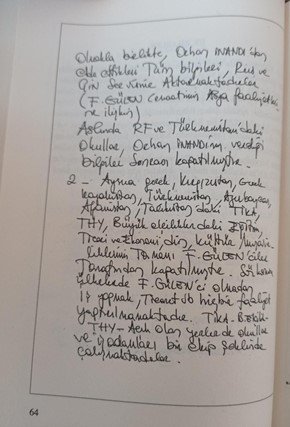 Olmakla birlikte, Orhan İNANDI'dan
elde ettikleri Tüm bilgileri, Rus ve
Çin Servisine Aktarmaktadırlar
(F. GÜLEN cemaatinin Asya faaliyetleri
ne ilişkin)
Aslında RF ve Türkmenistan'daki
Okullar, Orhan İNANDI'nın verdiği
bilgiler Sonrası kapatılmıştır.
2 - Ayrıca gerek, Kırgızistan, Gerek
Kazakistan, Türkmenistan, Azerbaycan,
Afganistan, Tacikistan'daki TİKA,
THY, Büyük elçiliklerdeki Eğitim,
Ticari ve Ekonomi, Din, Kültür Müşavir-
liklerinin Tamamı F. GÜLEN'ciler
Tarafından kapatılmıştır. Söz konusu
ülkelerde F. GÜLEN'ci olmadan
iş yapmak, Ticaret vb hiçbir faaliyet
yaptırılmamaktadır. TİKA-
THY- Açık olan yerlerde okullar
ve vatandaşları bir ekip Şeklinde
çalışmaktadırlar.
64